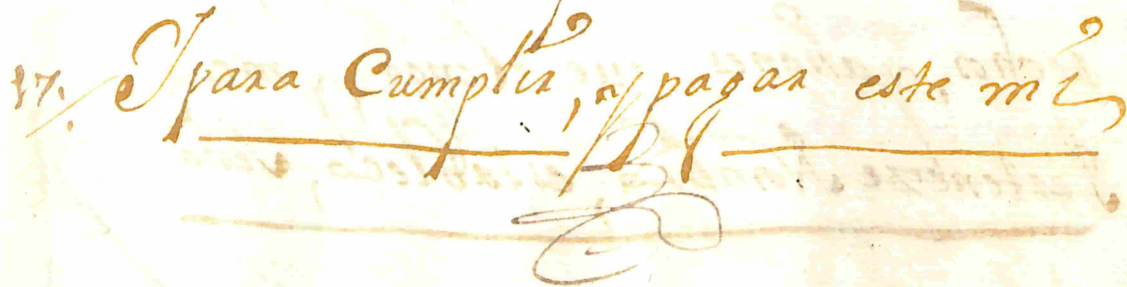 17. Y para Cumplir, y pagar este mi